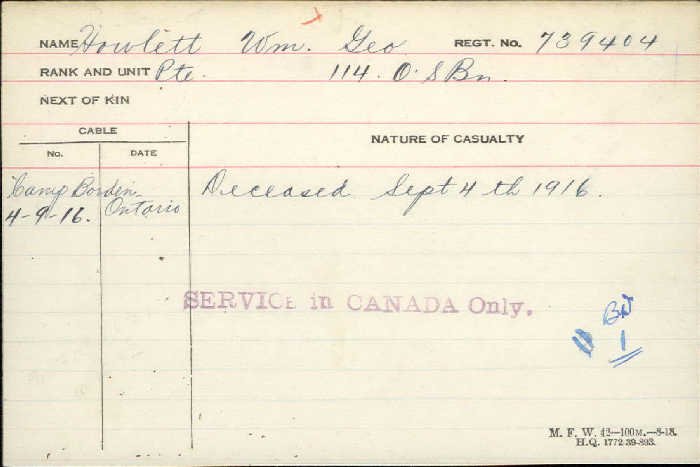 NAME Howlett Wm. Geo REGT. No. 739404
RANK AND UNIT Pte. 114. O.S Bn.
NEXT OF KIN
CABLE
NATURE OF CASUALTY
No. DATE
Camp Borden Ontario
4-9-16.
Deceased Sept 4th 1916.
SERVICE in CANADA Only.
1
M. F. W. 42—100M.—8-18.
H.Q. 1772-39-893.